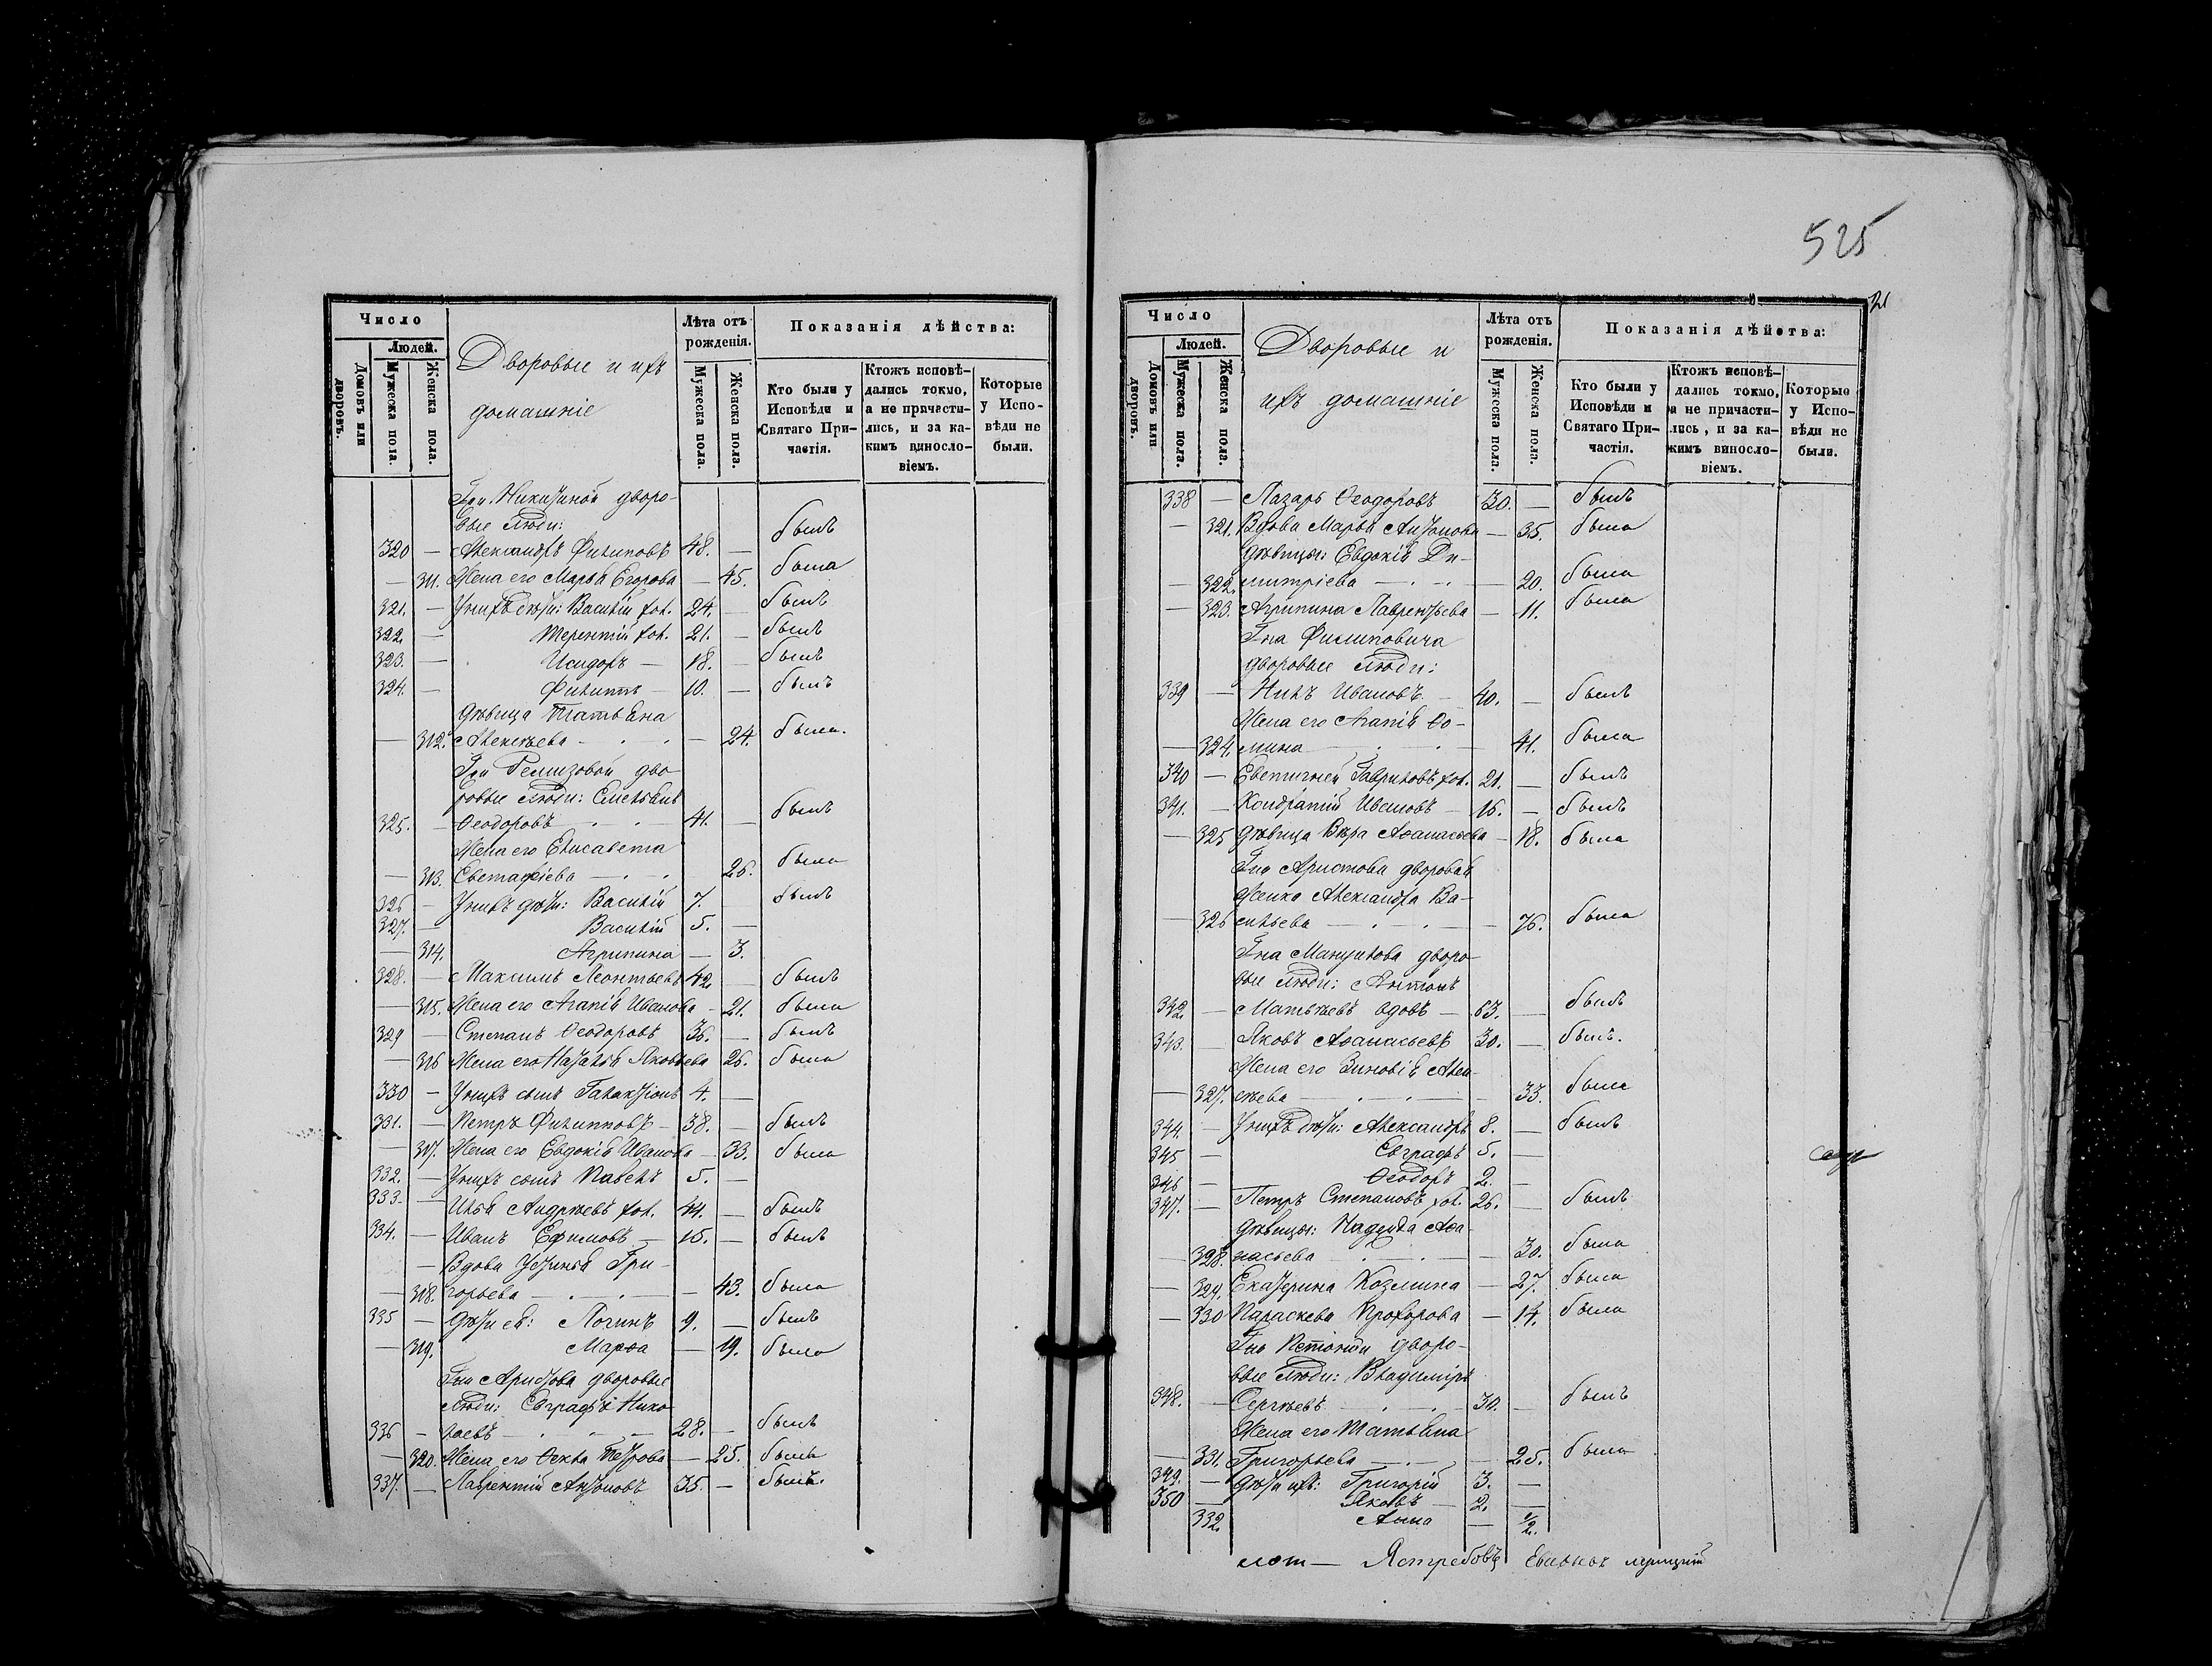 Число
Людей.
Домовъ или дворовъ.
Мужеска пола.
Женска пола.
Дворовые и ихъ
домашніе
Лѣта отъ рожденія.
Мужеска пола.
Женска пола.
Показанія дѣйства:
Кто были у Исповѣди и Святаго При-частія.
Ктожъ исповѣ-дались токмо, а не причасти-лись, и за ка-кимъ винсло-віемъ.
Которые у Испо-вѣди не были.
Гжи Никитиной дворо-
вые люди:
320 — Александръ Филиповъ 48. — былъ
— 311. Жена его Марья Егорова — 45. была
321. — У нихъ дѣти: Василій хол. 24. — былъ
322. — Терентій хол. 21. — былъ
323. — Исидоръ — 18. — былъ
324. — Филиппъ — 10. — былъ
дѣвица Татьяна
— 312. Алексѣева — 24. была.
Гжи Ремизовой дво-
ровые люди: Емельянъ
325. — Ѳеодоровъ 41. — былъ
Жена его Елисавета
— 313. Евстафіева — 26. была
326 — У нихъ дѣти: Василій 7. — былъ
327. — Василій 5. —
— 314. Агрипина — 3.
328. — Максимъ Леонтьевъ 42. — былъ
— 315. Жена его Агапія Иванова — 21. была
329 — Степанъ Ѳеодоровъ 36. — былъ
— 316 Жена его Наталья Яковлева 26. была
330 — У нихъ сынъ Галактіонъ 4. —
331. — Петръ Филипповъ — 38. — былъ
— 317. Жена его Евдокія Иванова — 33. была
332. — У нихъ сынъ Павелъ 5. —
333. — Илья Андреевъ хол. 44. — былъ
334. — Иванъ Ефимовъ — 15. — былъ
— Вдова Устинья Гри-
— 318. горьева — 43. была
335 — Дѣти ея: Логинъ 9. — былъ
— 319. Марѳа — 19. была
Гжи Аристова дворовые
люди: Евграфъ Нико-
336 — лаевъ 28. — былъ
— 320. Жена его Ѳекла Петрова — 25. была
337. — Лаврентій Антоновъ 35. — былъ.
525
21
Число
Людей.
Домовъ или дворовъ.
Мужеска пола.
Женска пола.
Дворовые и
ихъ домашніе
Лѣта отъ рожденія.
Мужеска пола.
Женска пола.
Показанія дѣйства:
Кто были у Исповѣди и Святаго При-частія.
Ктожъ исповѣ-дались токмо, а не причасти-лись, и за ка-кимъ винсло-віемъ.
Которые у Испо-вѣди не были.
338 — Лазарь Ѳеодоровъ 30. — былъ
— 321. Вдова Марья Антонова — 35. была
дѣвицы: Евдокія Ди-
— 322. митріева — 20. была
— 323. Агрипина Лаврентьева — 11. была
Гна Филиповича
дворовые люди:
339 — Нилъ Ивановъ 40. — былъ
Жена его Агапія Ѳо-
— 324. мина — 41. была
340 — Евстигней Гавриловъ хол. 21. — былъ
341. — Кондратій Ивановъ — 16. — былъ
— 325 дѣвица Вѣра Аѳанасьева — 18. была
Гна Аристова дворовая
женка Александра Ва-
— 326 сильева — 76. была
Гна Манцилова дворо-
вые люди: Антонъ
342. — Матвѣевъ вдовъ — 63. — былъ
343. — Яковъ Аѳанасьевъ 30. — былъ.
Жена его Зиновія Алек-
— 327. сѣева — 33. была
344. — У нихъ дѣти: Александръ 8. — былъ
345 — Евграфъ 5. —
346 — Ѳеодоръ 2. —
347. — Петръ Степановъ хол. 26. — былъ
дѣвицы: Надежда Аѳа-
— 328. насьева — 30. была
— 329. Екатерина Козмина — 27. была
— 330 Параскева Прохорова — 14. была
дворо-
вые люди: Владиміръ
348. — Сергѣевъ 30. — былъ
Жена его Татьяна
— 331. Григорьева — 25. была
349. — Дѣти ихъ: Григорій 3. —
350 — Яковъ — 2. —
332. Анна — 1/2.
Ястребовъ